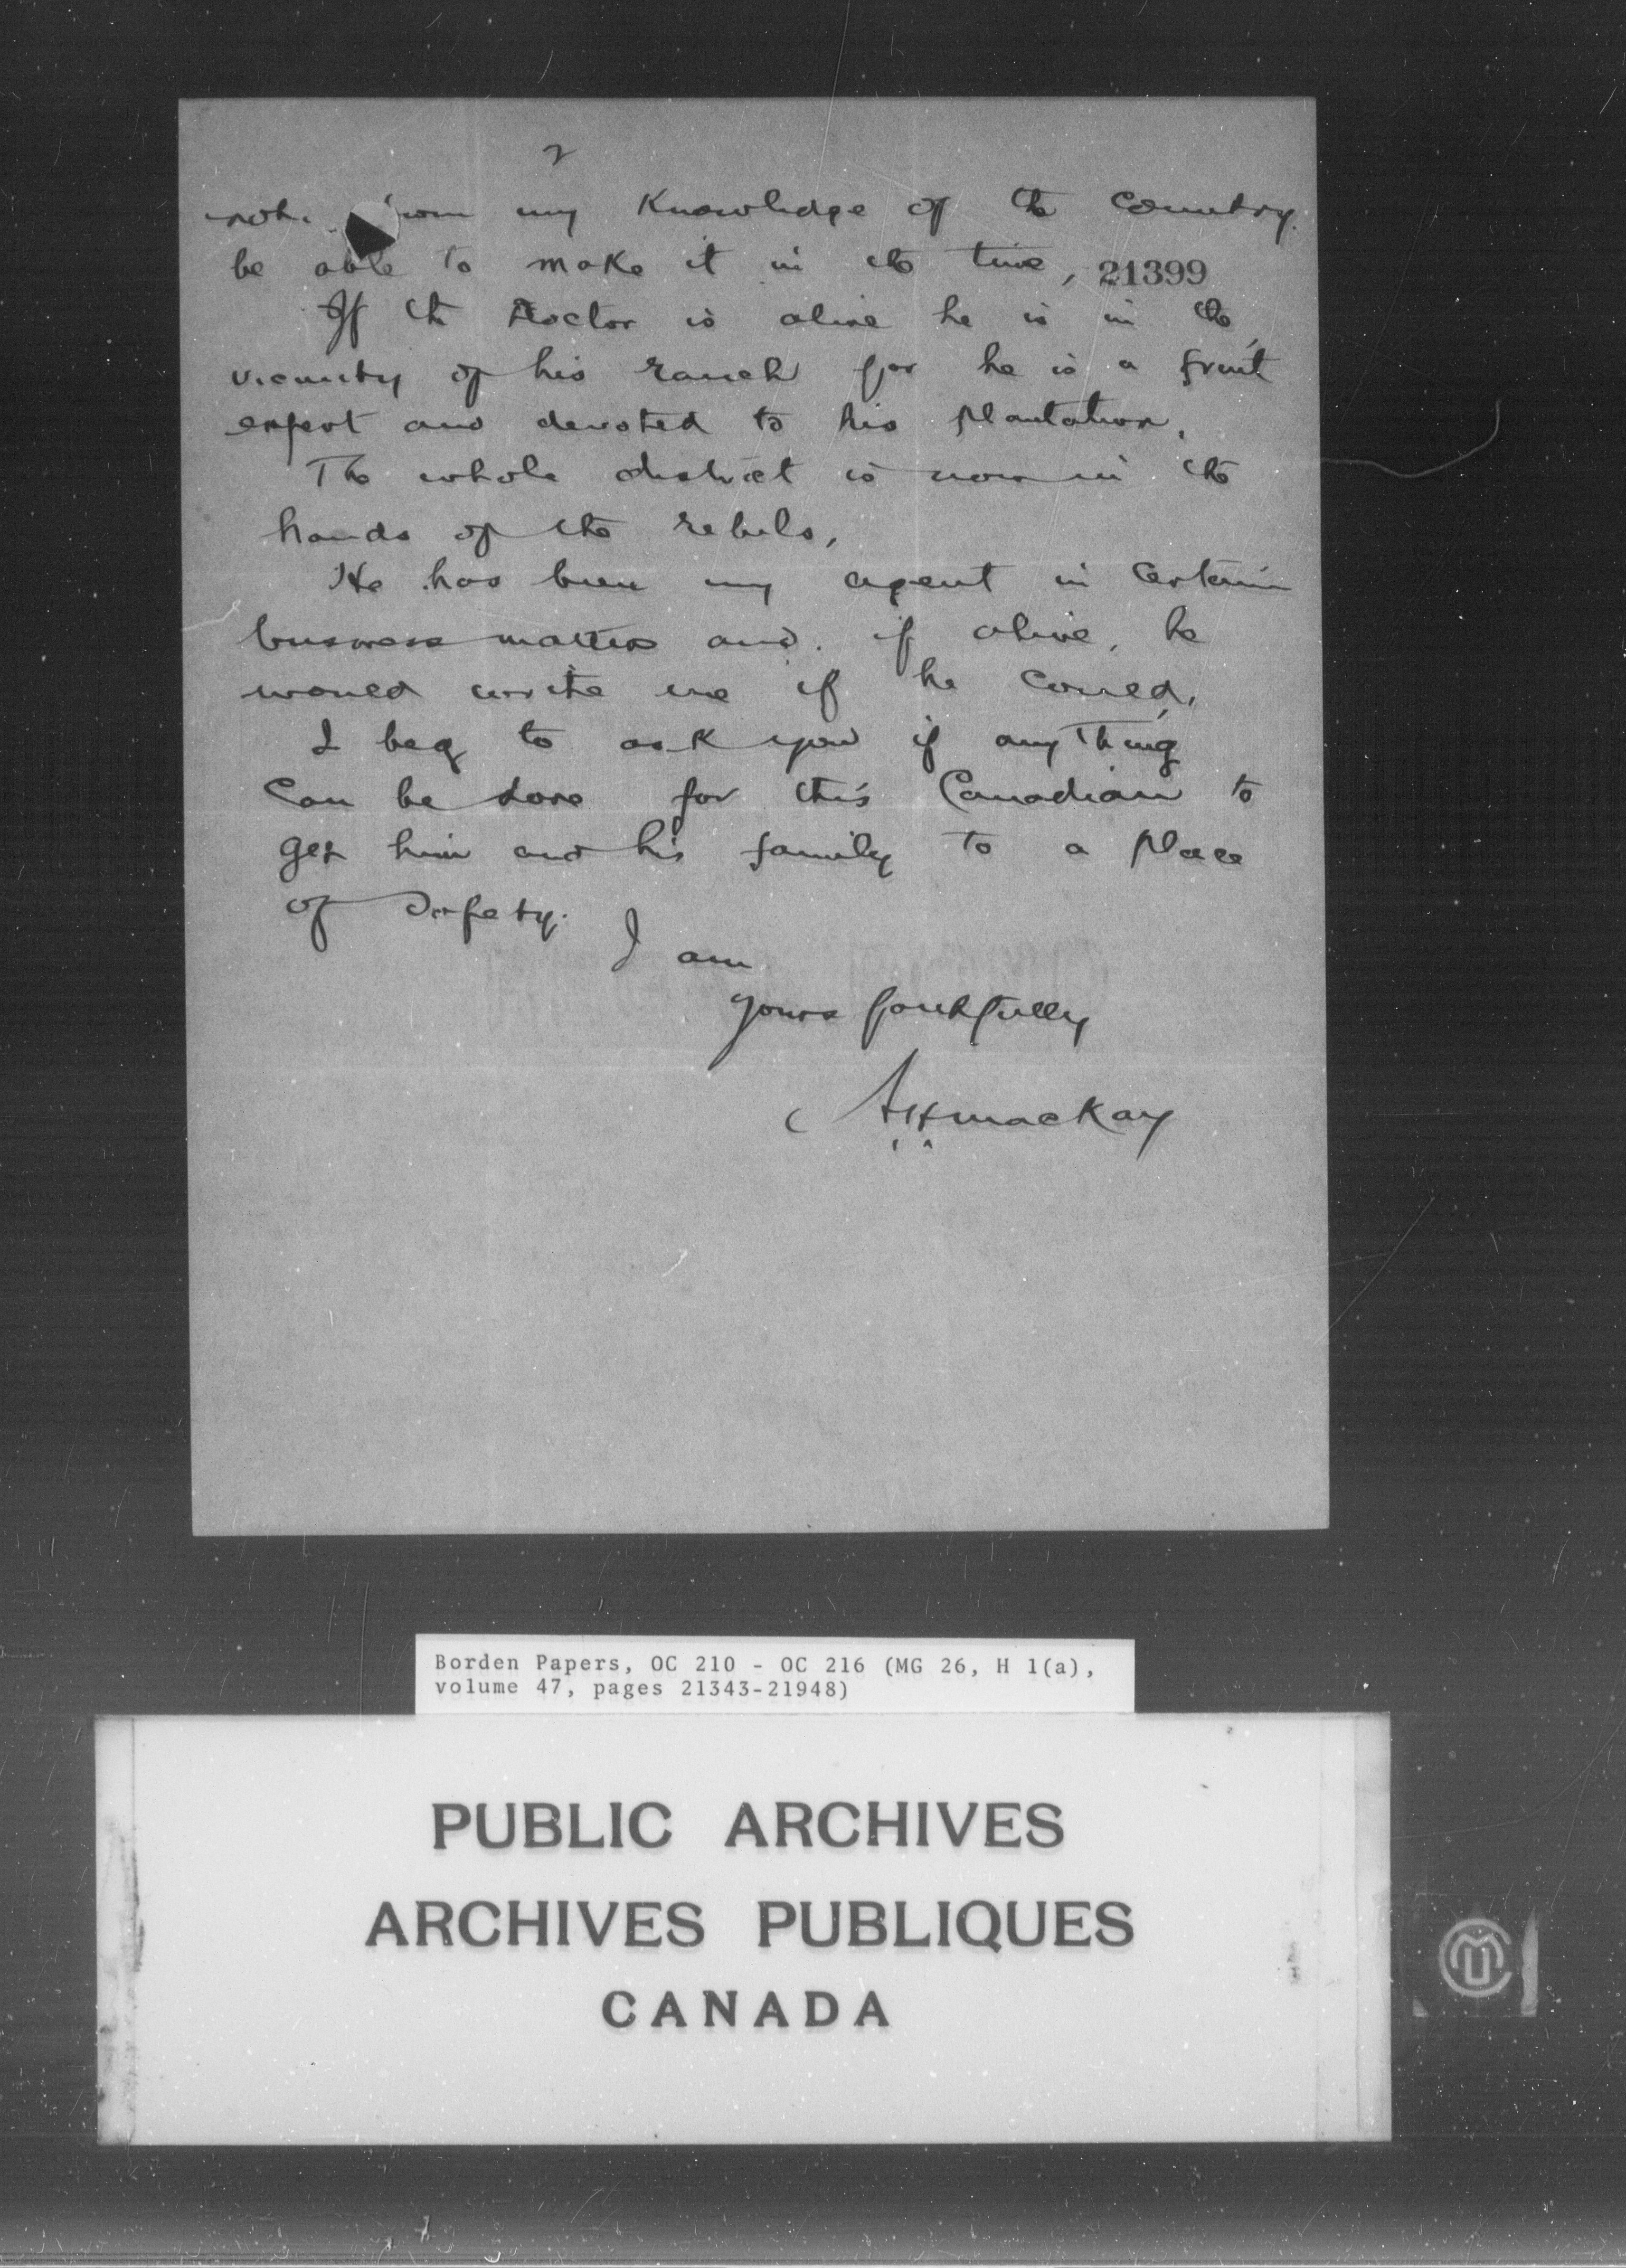 2
not from my Knowledge of the country
be able to make it in the time, 21399
If the Doctor is alive he is in the
vicinity of his ranch for he is a fruit
expert and devoted to his plantation.
The whole district is now in the
hands of the rebels,
He has been my agent in certain
business matters and if alive, he
would write me if he could,
I beg to ask you if any Thing
can be done for this Canadian to
get him and his family to a place
of safety.
I am
yours faithfully
AHmacKay
Borden Papers, OC 210 - OC 216 (MG 26, H 1(a),
volume 47, pages 21343-21948)
PUBLIC ARCHIVES
ARCHIVES PUBLIQUES
CANADA